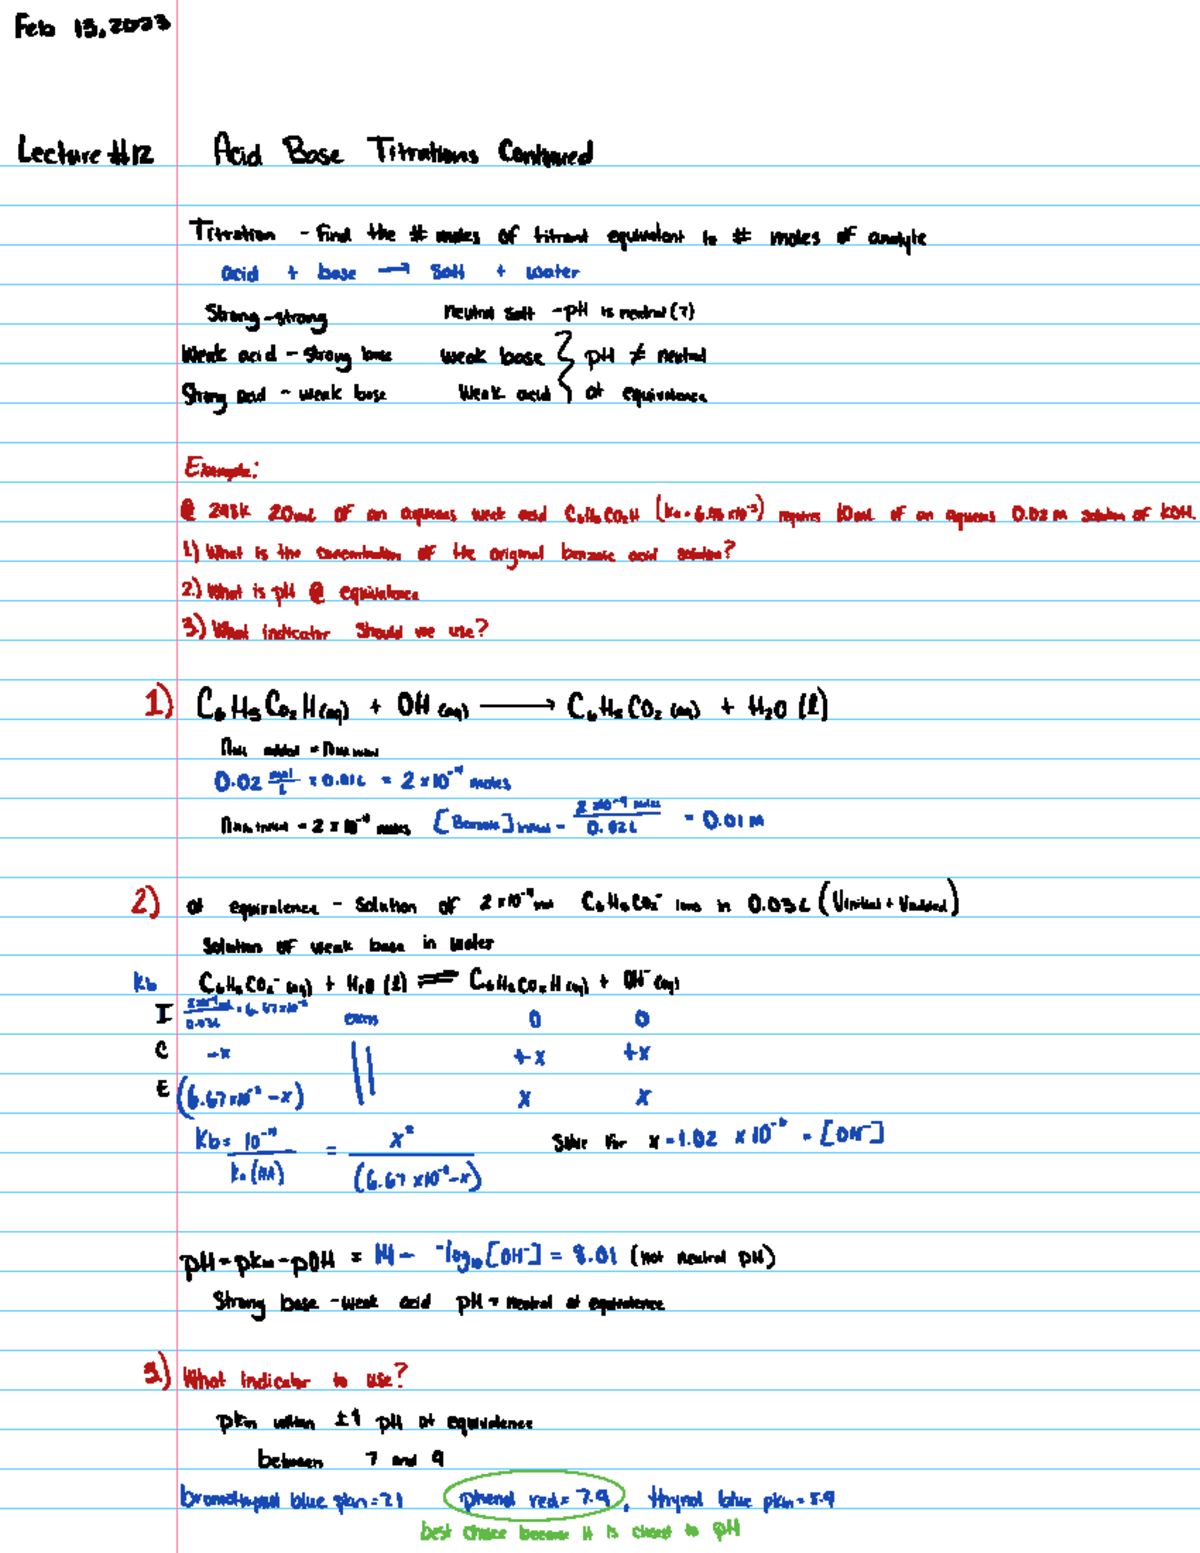 Feb 13, 2023
Lecture #12 Acid Base Titrations Continued
Titration - find the # moles of titrant equivalent to # moles of analyte
acid + base → salt + water
Strong-strong neutral salt - pH is neutral (7)
Weak acid - strong base weak base } pH ≠ neutral
Strong acid - weak base weak acid } at equivalence
Example:
@ 298K 20mL of an aqueous weak acid C6H5CO2H requires 10mL of an aqueous 0.02 M solution of KOH.
1) What is the concentration of the original benzoic acid solution?
2) What is pH @ equivalence
3) What indicator should we use?
1) C6H5CO2H (aq) + OH (aq) → C6H5CO2 (aq) + H2O (l)
added =
0.02 mol/L × 0.01L = 2 × 10⁻⁴ moles
= 2 × 10⁻⁴ moles [Benzoic]initial = 2×10⁻⁴ moles / 0.02L = 0.01 M
2) at equivalence - solution of 2×10⁻⁴ mol C6H5CO2⁻ ions in 0.03L (Vinitial + Vadded)
Solution of weak base in water
Kb C6H5CO2⁻ (aq) + H2O (l) ⇌ C6H5CO2H (aq) + OH⁻ (aq)
I 0.03L 0 0
C -x +x +x
E x x
Kb = 10⁻¹⁴ / Ka (HA) = x² / Solve for x = 1.02 × 10⁻⁶ = [OH⁻]
pH = pKw - pOH = 14 - -log10[OH⁻] = 8.01 (not neutral pH)
Strong base - weak acid pH neutral at equivalence
3) What indicator to use?
pKin within ±1 pH at equivalence
between 7 and 9
bromothymol blue pKin = 7.1 phenol red = 7.9, thymol blue pKin = 8.9
best choice because it is closest to pH